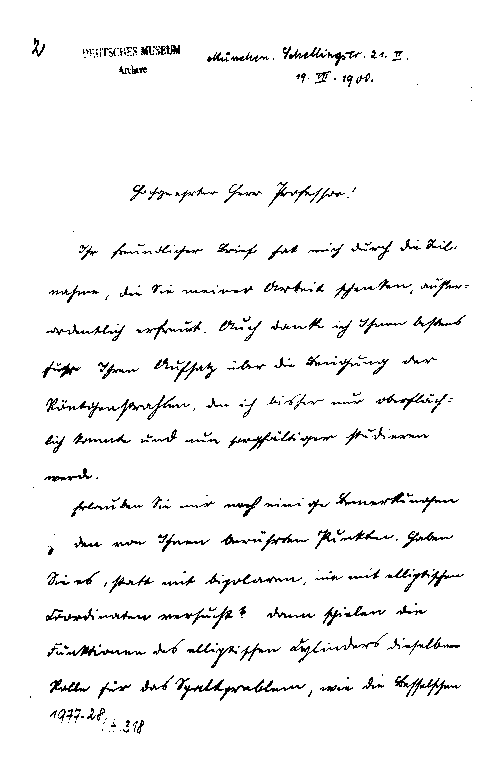 2
DEUTSCHES MUSEUM
Archive
München. Schellingstr. 21. II.
19. VII. 1900.
Hochgeehrter Herr Professor!
Ihr freundlicher Brief hat mich durch die Teil-
nahme, die Sie meiner Arbeit schenken, außer-
ordentlich erfreut. Auch danke ich Ihnen bestens
für Ihren Aufsatz über die Beugung der
Röntgenstrahlen, den ich bisher nur oberfläch-
lich kannte und nun sorgfältiger studieren
werde.
Erlauben Sie mir noch einige Bemerkungen
zu den von Ihnen berührten Punkten. Haben
Sie es, statt mit bipolaren, nie mit elliptischen
Coordinaten versucht? Dann spielen die
Funktionen des elliptischen Cylinders dieselbe
Rolle für das Spaltproblem, wie die Besselschen
1977-28/A.318